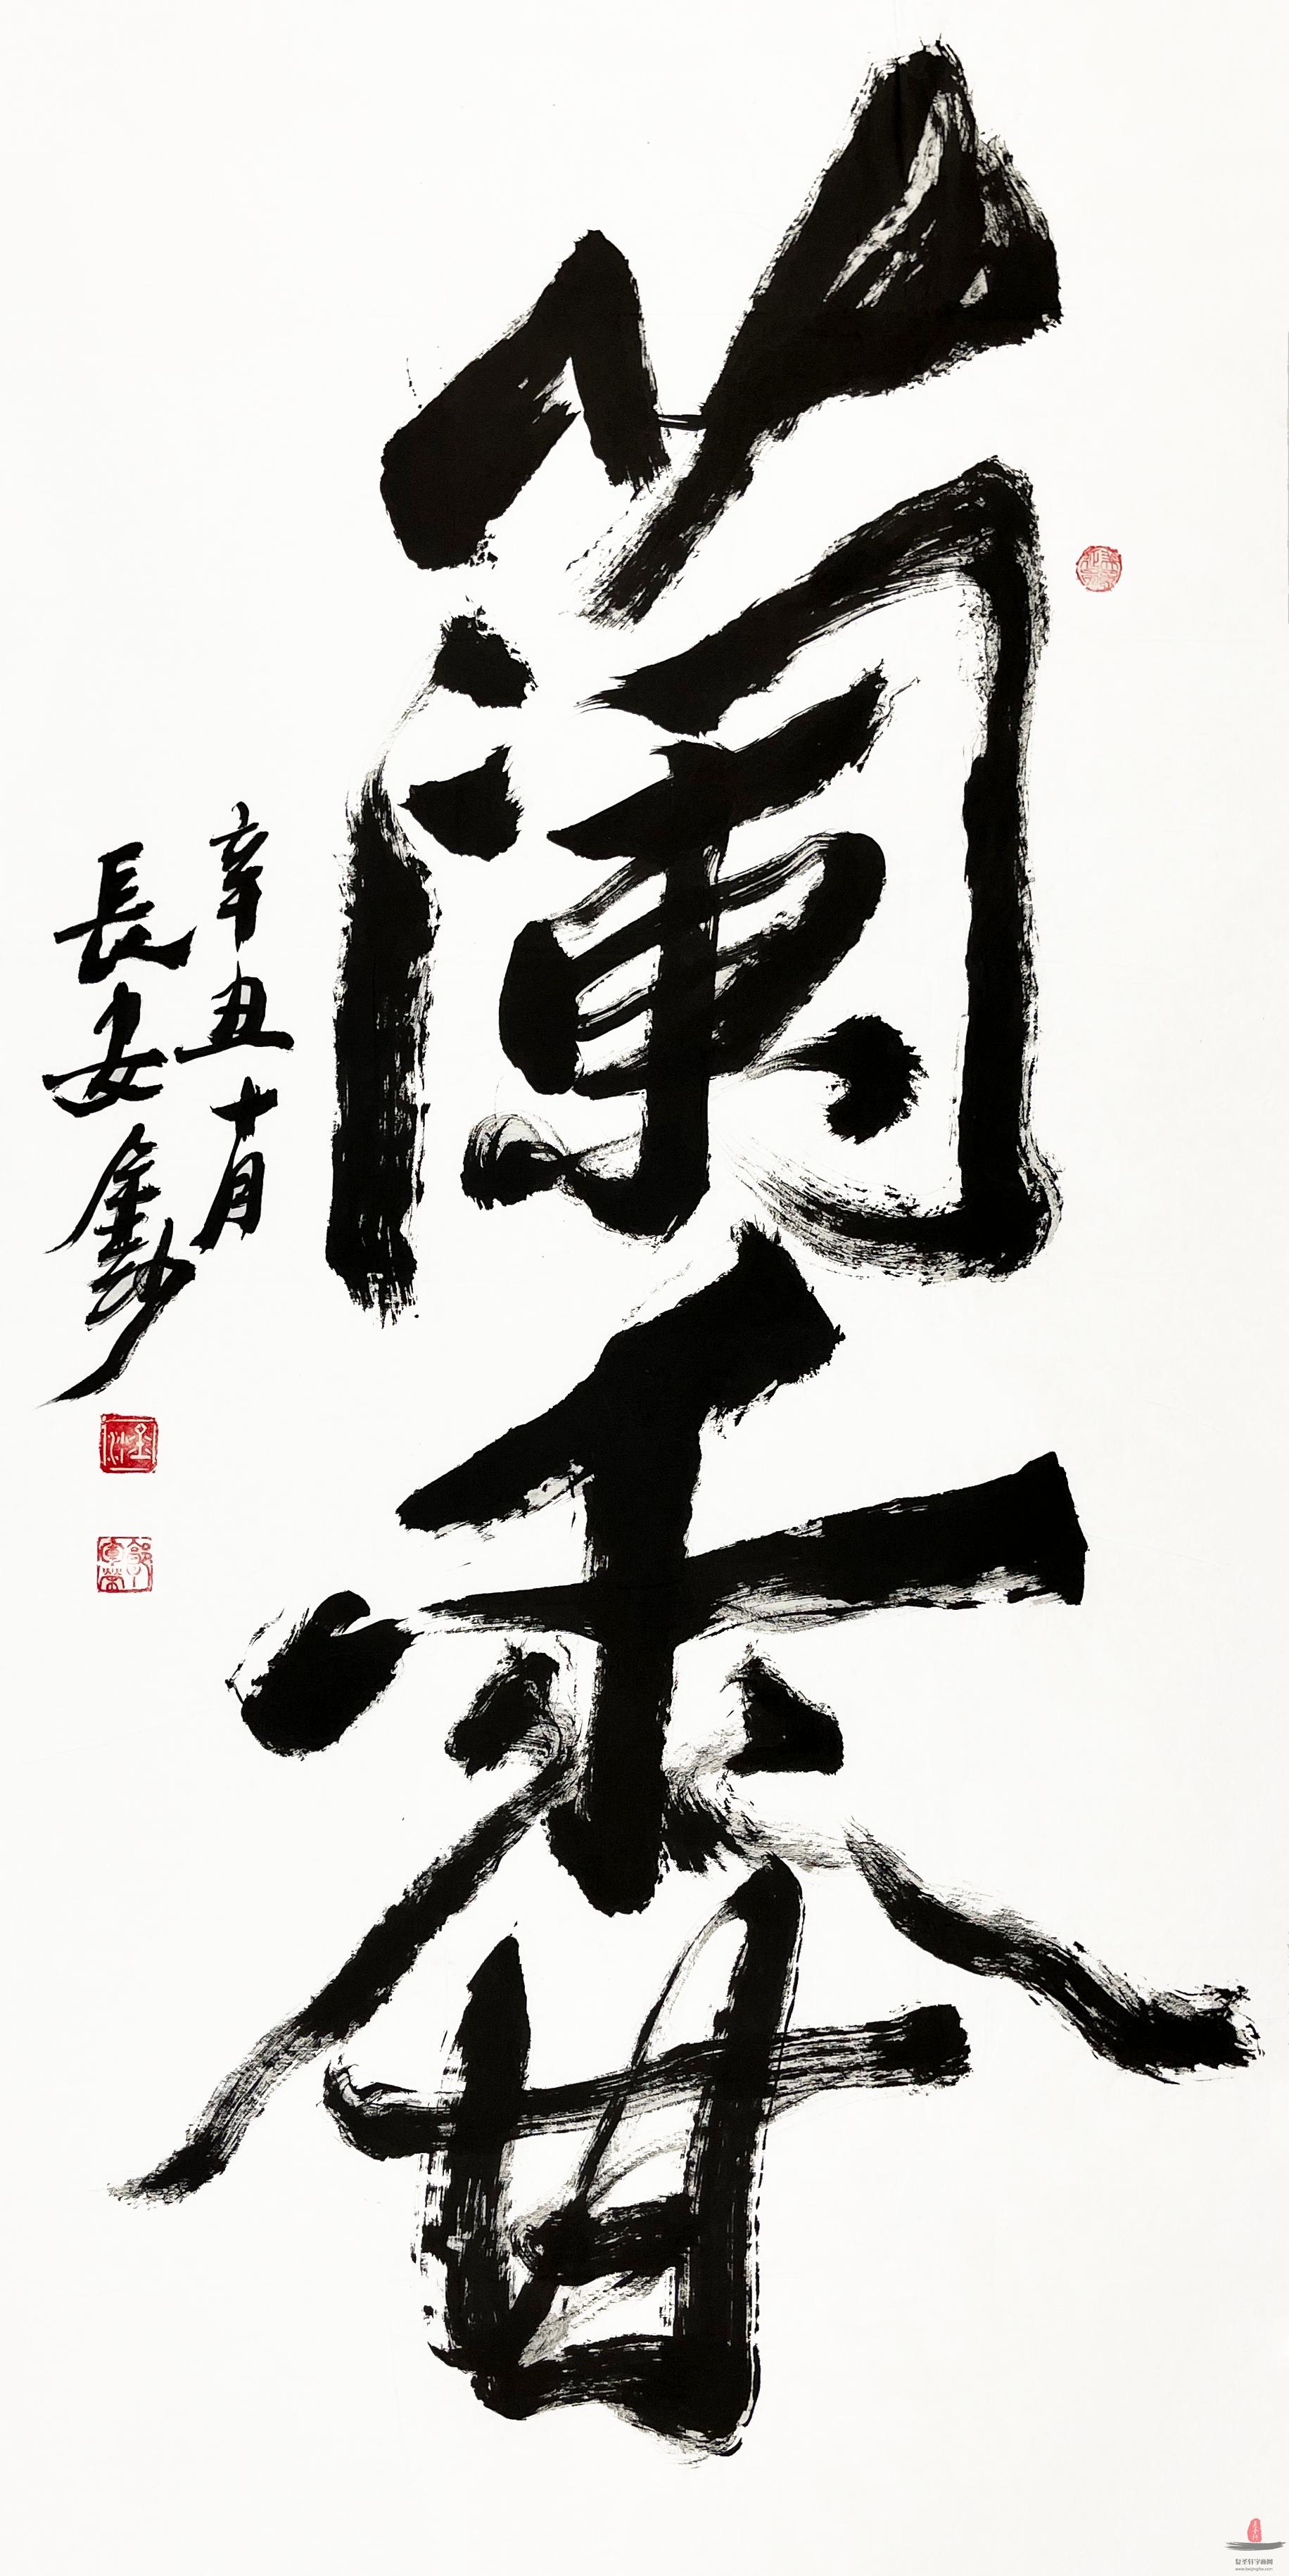 蘭香
辛丑十月
長安金沙